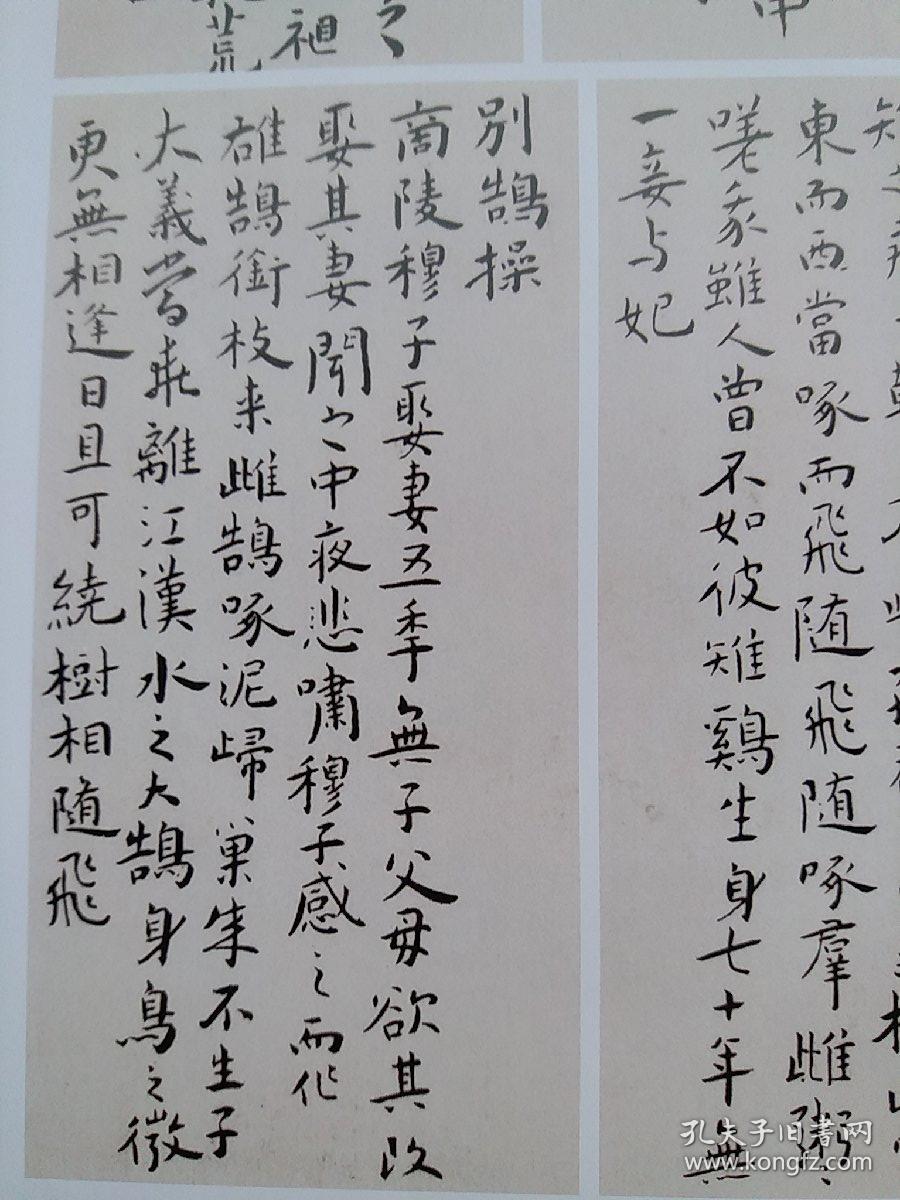 東而西當啄而飛随飛随啄羣雌粥〻
嗟余雖人曾不如彼雉鷄生身七十年無
一妾与妃
別鵠操
商陵穆子娶妻五秊無子父母欲其改
娶其妻聞之中夜悲嘯穆子感之而作
雄鵠銜枝来雌鵠啄泥歸巢成不生子
大義當乖離江漢水之大鵠身鳥之微
更無相逢日且可繞樹相随飛
孔夫子旧书网
www.kongfz.com